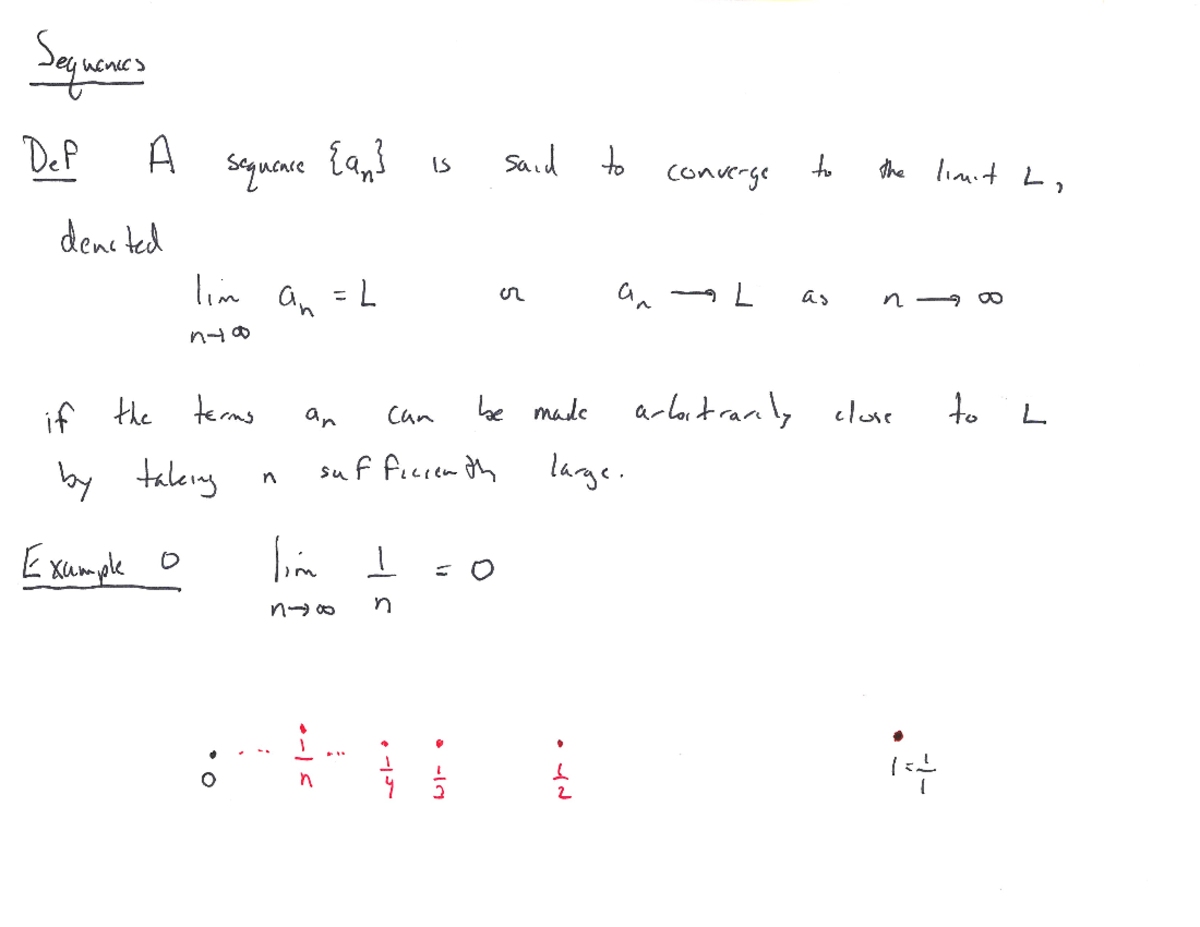 Sequences
Def A sequence {aₙ} is said to converge to the limit L,
denoted
lim aₙ = L or aₙ → L as n → ∞
n→∞
if the terms aₙ can be made arbitrarily close to L
by taking n sufficiently large.
Example 0 lim 1/n = 0
n→∞
0 ... 1/n ... 1/4 1/3 1/2 1 = 1/1